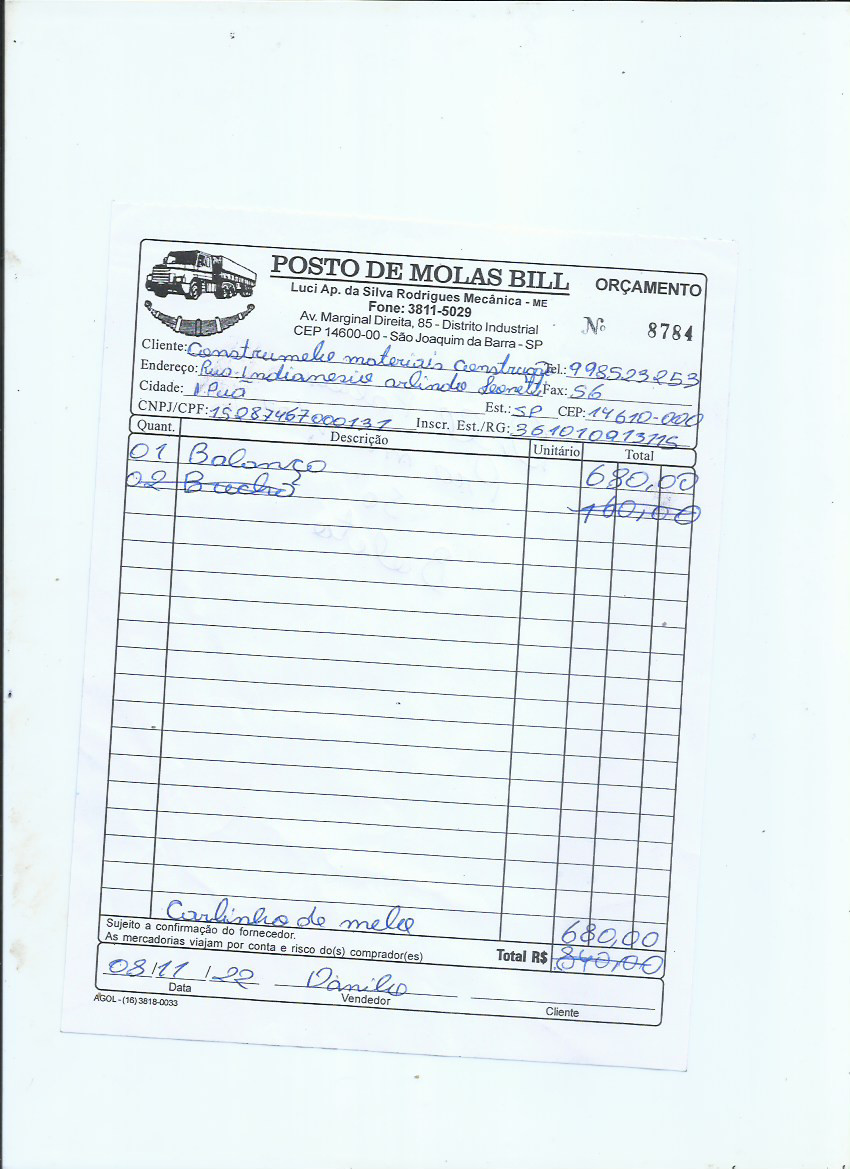 POSTO DE MOLAS BILL
ORÇAMENTO
Luci Ap. da Silva Rodrigues Mecânica - ME
Fone: 3811-5029
Av. Marginal Direita, 85 - Distrito Industrial
CEP 14600-00 - São Joaquim da Barra - SP
Nº 8784
Cliente: Construmelo materiais construção Tel.: 998523253
Endereço: Rua Indianesio arlindo Fax: 56
Cidade: Ipuã Est.: SP CEP: 14610-000
CNPJ/CPF: 15287467000131 Inscr. Est./RG: 361010913115
Quant. Descrição Unitário Total
01 Balanço 680,00
02 160,00
Carlinho de melo 680,00
Sujeito a confirmação do fornecedor.
As mercadorias viajam por conta e risco do(s) comprador(es) Total R$ 840,00
08/11/22 Danilo
Data Vendedor Cliente
AGOL - (16) 3818-0033